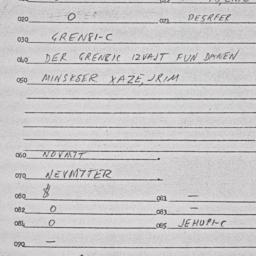 020 0 021 DESRFER
030 GRENBI-C
040 DER GRENBIC 12VAJT FUN DAMEN
050 MINSKSER XAZEJRIM
060 NOVMTT
070 NEVMTTER
080 $ 081 —
082 0 083 —
084 0 085 JEHUPI-C
090 —